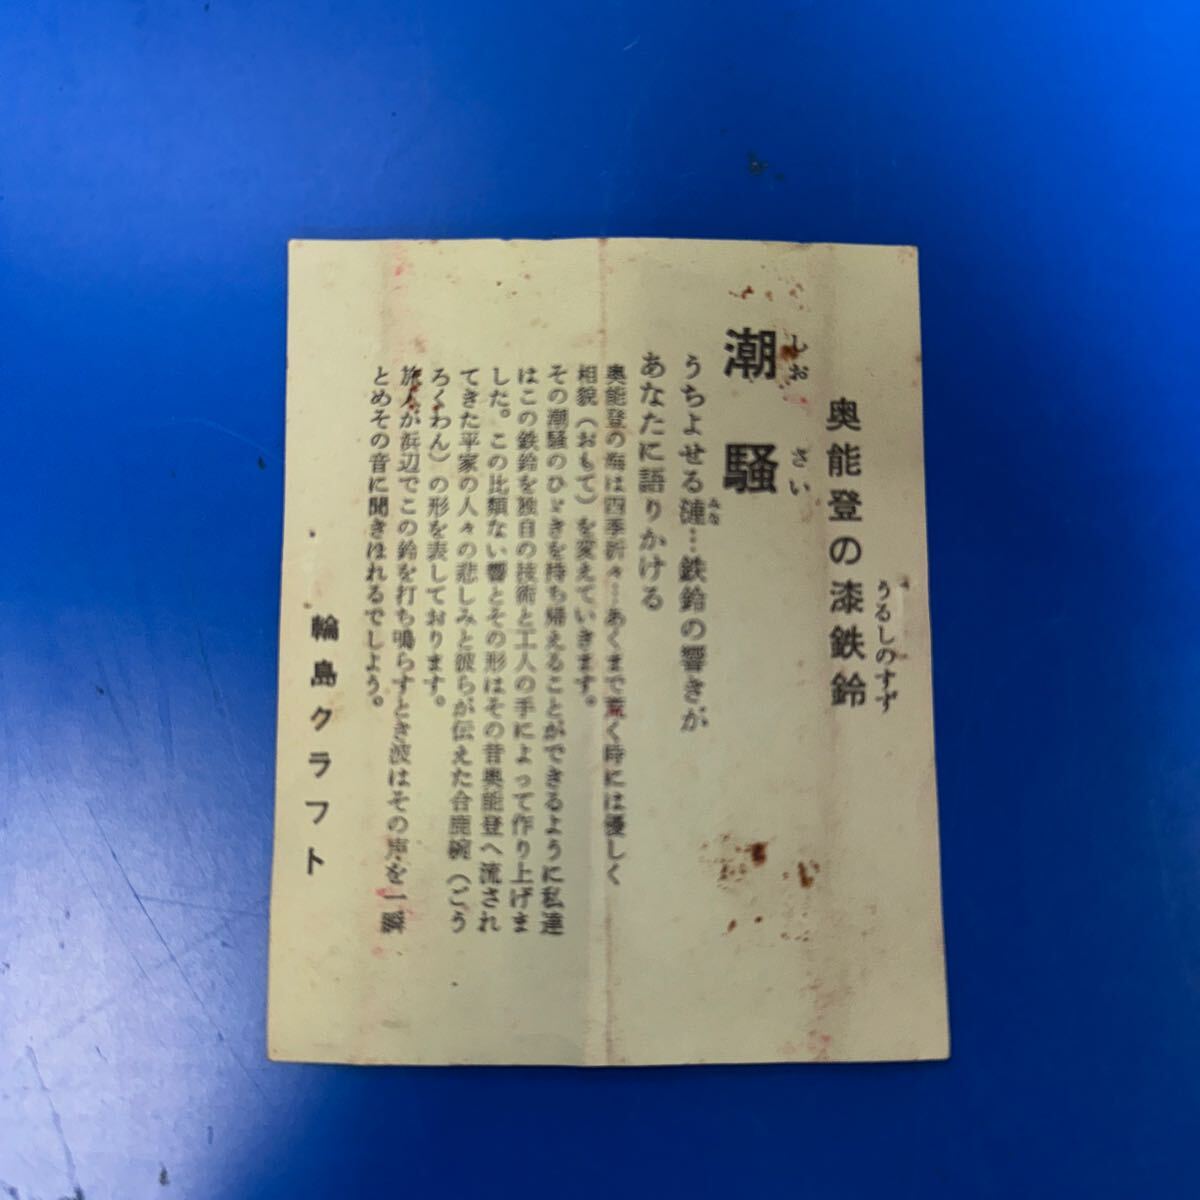 奥能登の漆鉄鈴
うるしのすず
潮騒
しおさい
うちよせる漣…鉄鈴の響きが
みな
あなたに語りかける
奥能登の海は四季折々…あくまで荒く時には優しく
相貌（おもて）を変えていきます。
その潮騒のひゞきを持ち帰えることができるように私達
はこの鉄鈴を独自の技術と工人の手によって作り上げま
した。この比類ない響とその形はその昔奥能登へ流され
てきた平家の人々の悲しみと彼らが伝えた合鹿椀（ごう
ろくわん）の形を表しております。
旅人が浜辺でこの鈴を打ち鳴らすとき波はその声を一瞬
とめその音に聞きほれるでしよう。
輪島クラフト